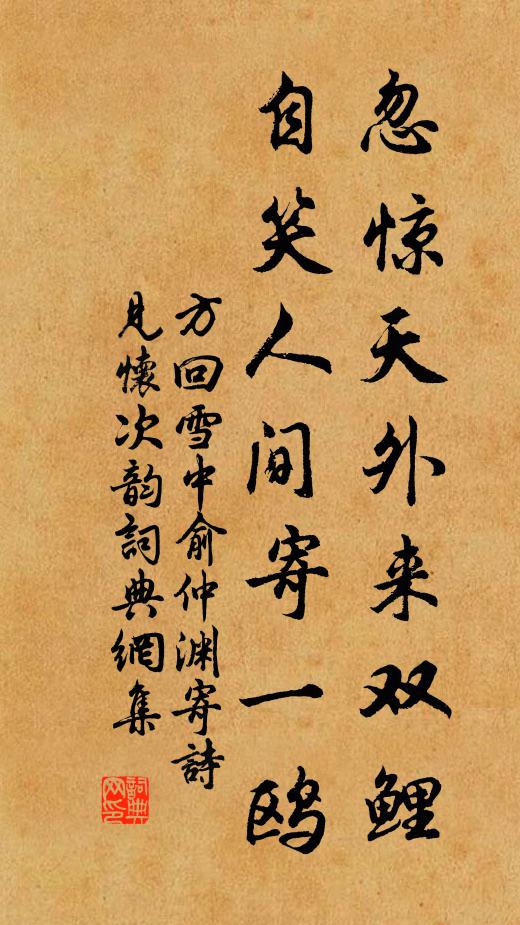 忽惊天外来双鲤
自笑人间寄一鸥
方回雪中俞仲渊寄詩
見懷次韵詞典網集
詞典
网印